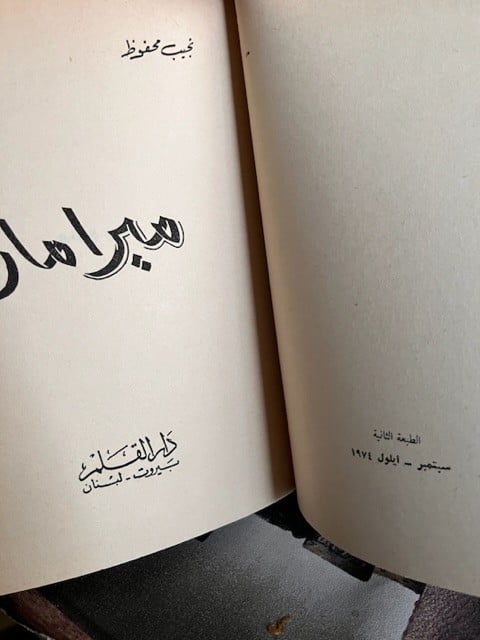 نجيب محفوظ
ميرامار
دار القلم
بيروت - لبنان
الطبعة الثانية
سبتمبر - ايلول ١٩٧٤